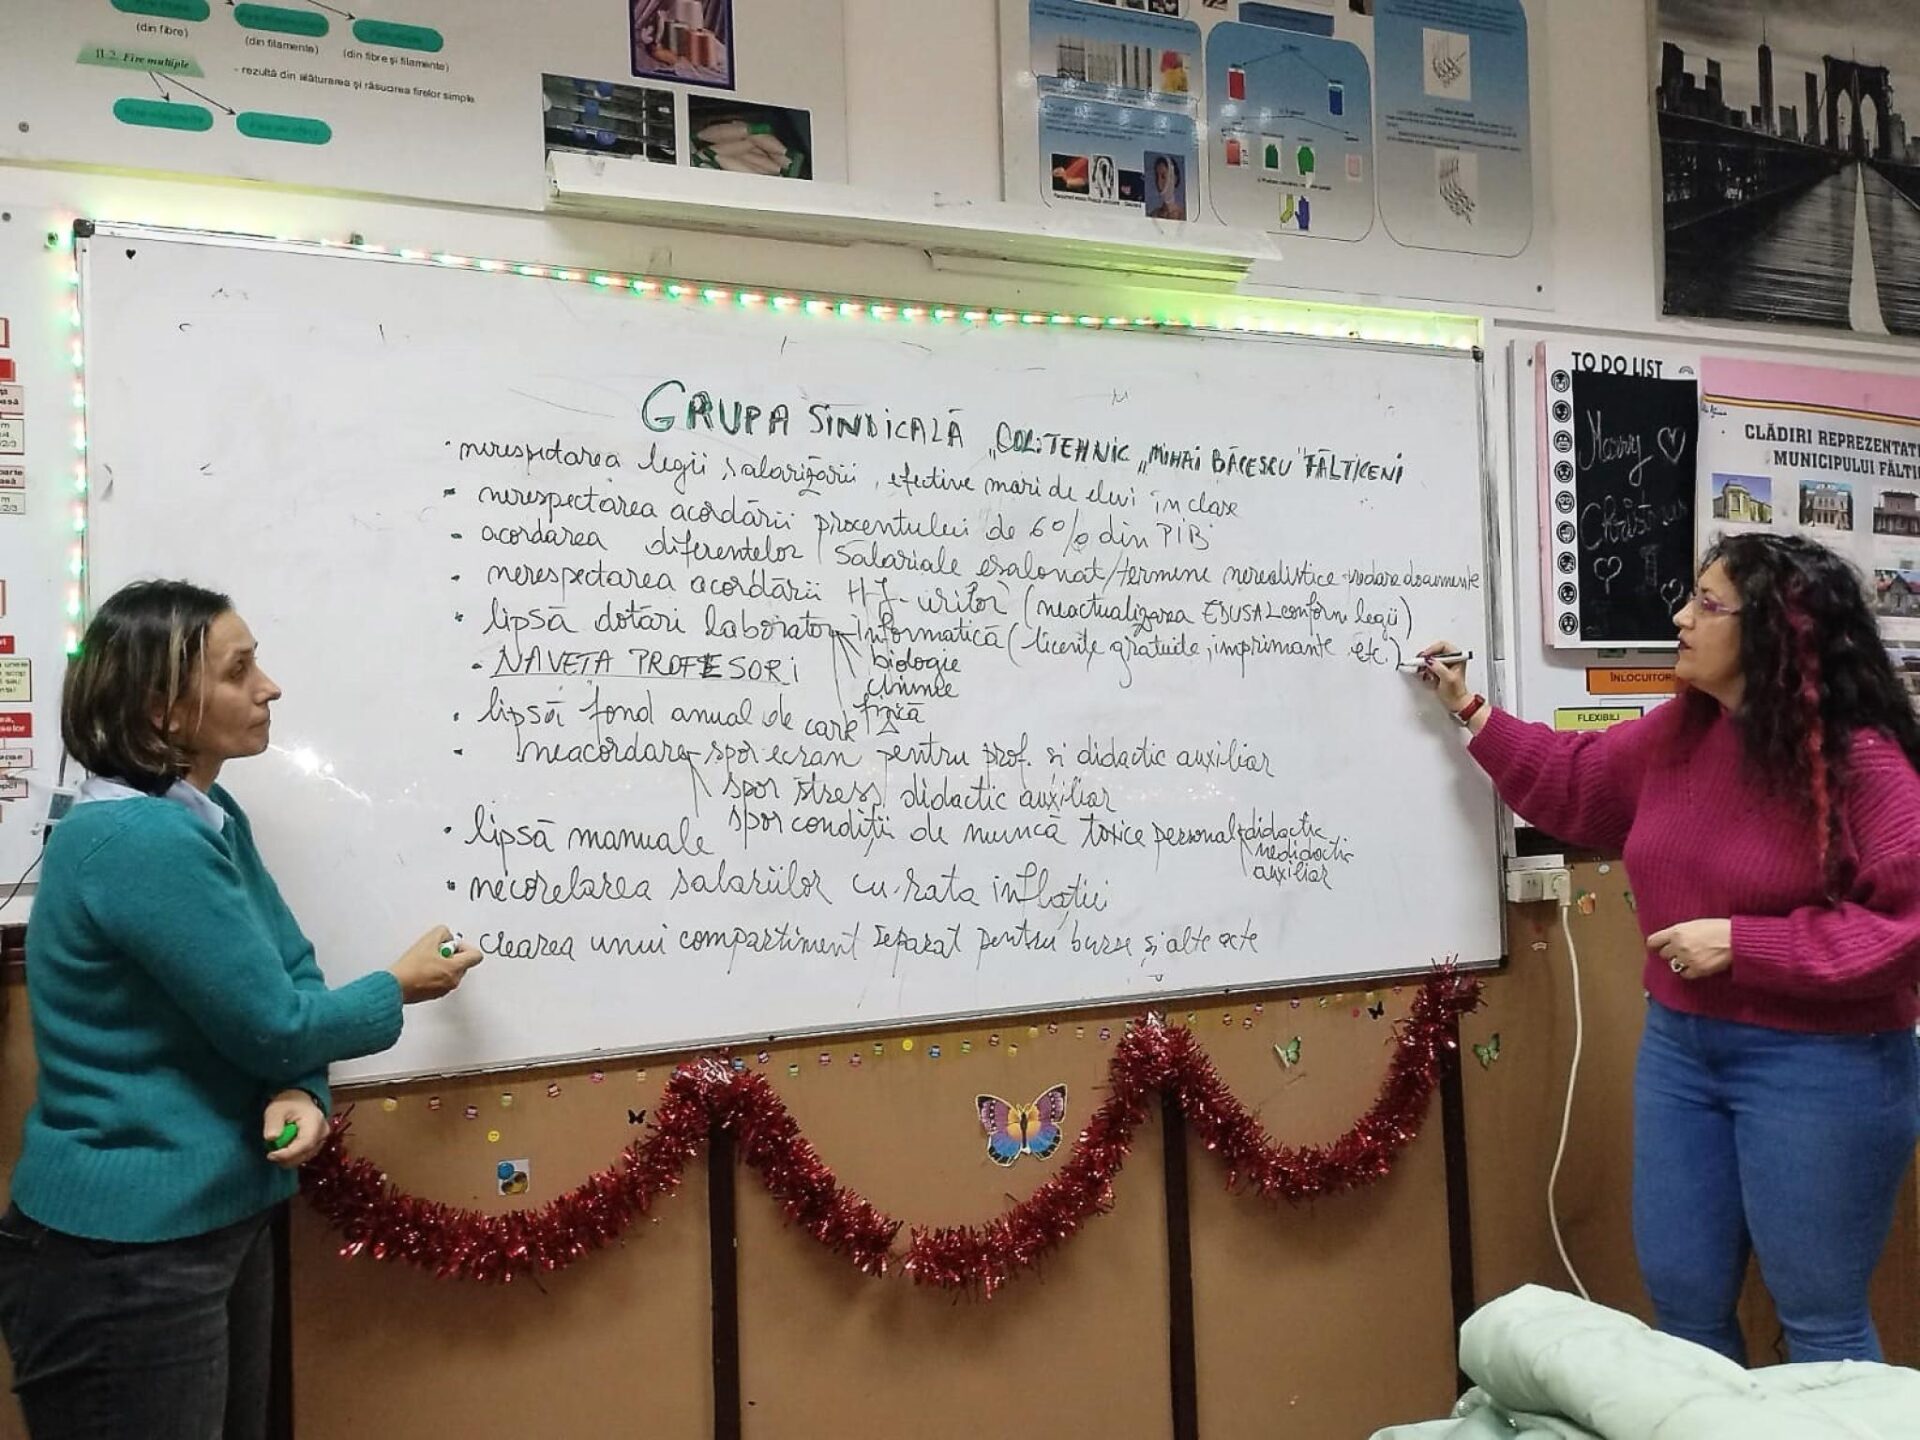 (din fibre)
(din filamente)
(din fibre și filamente)
II.2. Fire multiple
- rezultă din alăturarea și răsucirea firelor simple
GRUPA SINDICALĂ „COL. TEHNIC „MIHAI BĂCESCU" FĂLTICENI
• nerespectarea legii salarizării, efective mari de elevi în clase
• nerespectarea acordării procentului de 6% din PIB
• acordarea diferentelor salariale esalonat/termene nerealistice
• nerespectarea acordării H.J-urilor (neactualizarea EDUSAL conform legii)
• lipsă dotări laborator informatică (licente gratuite, imprimante etc.)
biologie
chimie
fizică
• NAVETA PROFESORI
• lipsă fond anual de carte
• neacordare spor ecran pentru prof. si didactic auxiliar
spor stress didactic auxiliar
spor condiții de muncă toxice personal didactic
nedidactic
auxiliar
• lipsă manuale
• necorelarea salariilor cu rata inflației
• crearea unui compartiment separat pentru burse și alte acte
TO DO LIST
Merry
Christmas
CLĂDIRI REPREZENTATI
MUNICIPULUI FĂLTI
ÎNLOCUITOR
FLEXIBILI